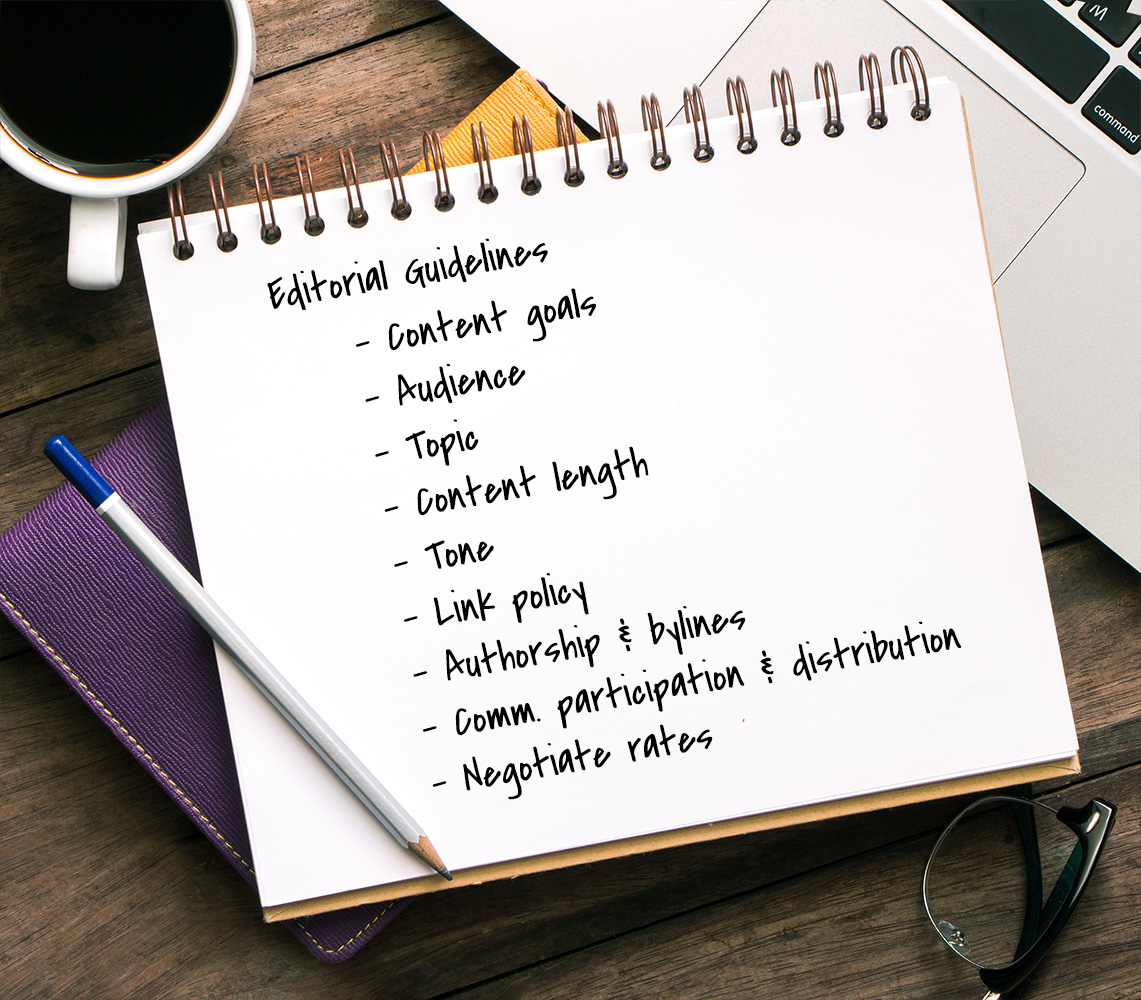 Editorial Guidelines
- Content goals
- Audience
- Topic
- Content length
- Tone
- Link policy
- Authorship & bylines
- Comm. participation & distribution
- Negotiate rates
command